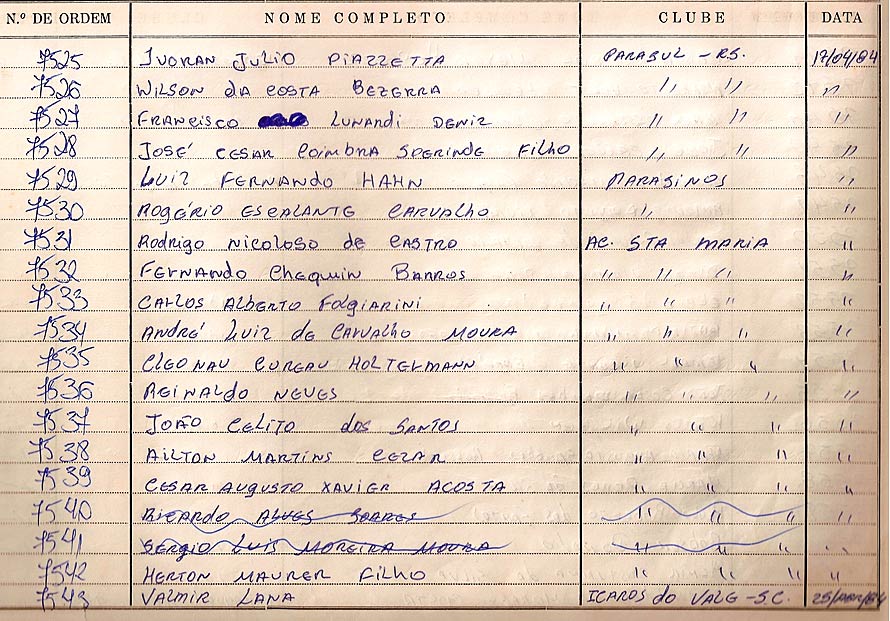 N.º DE ORDEM NOME COMPLETO CLUBE DATA
7525 IVORAN JULIO PIAZZETTA PARASUL - RS. 17/04/84
7526 WILSON DA COSTA BEZERRA " " "
7527 FRANCISCO LUNARDI DENIZ " " "
7528 JOSÉ CESAR COIMBRA SPERINDE FILHO " " "
7529 LUIZ FERNANDO HAHN PARASINOS "
7530 ROGÉRIO ESCALANTE CARVALHO " "
7531 RODRIGO NICOLOSO DE CASTRO AC. STA MARIA "
7532 FERNANDO CHEQUIN BARROS " " " "
7533 CARLOS ALBERTO FOLGIARINI " " " "
7534 ANDRÉ LUIZ DE CARVALHO MOURA " " " "
7535 CLEONAU CUREAU HOLTERMANN " " " "
7536 REINALDO NEVES " " " "
7537 JOÃO CELITO DOS SANTOS " " " "
7538 AILTON MARTINS CEZAR " " " "
7539 CESAR AUGUSTO XAVIER ACOSTA " " " "
7540 RICARDO ALVES SOARES " " " "
7541 SERGIO LUIS MOREIRA MOURA " " " "
7542 HERTON MAURER FILHO " " " "
7543 VALMIR LANA ICAROS do VALE - S.C. 25/ABR/84